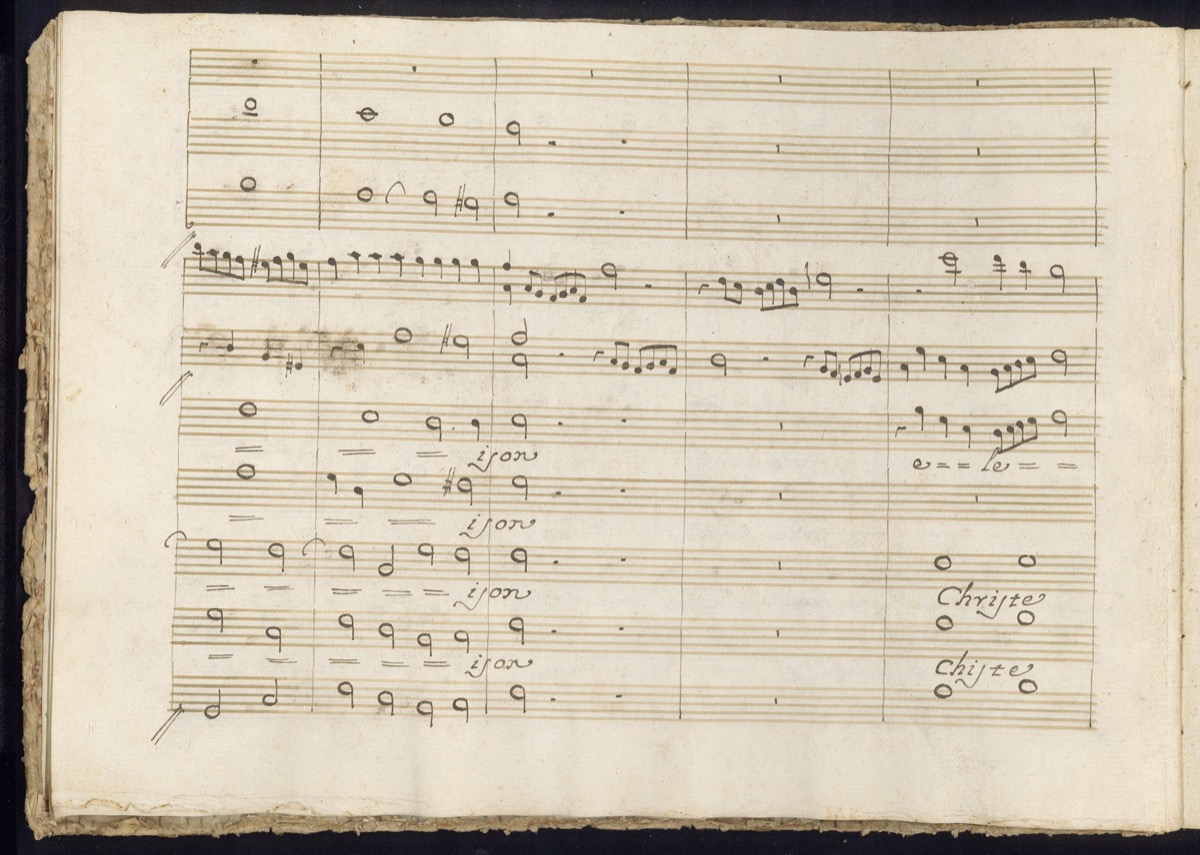 = = = ison e = = le = =
= = = ison
= = = = = ison Christe
= = = = = ison Chiste